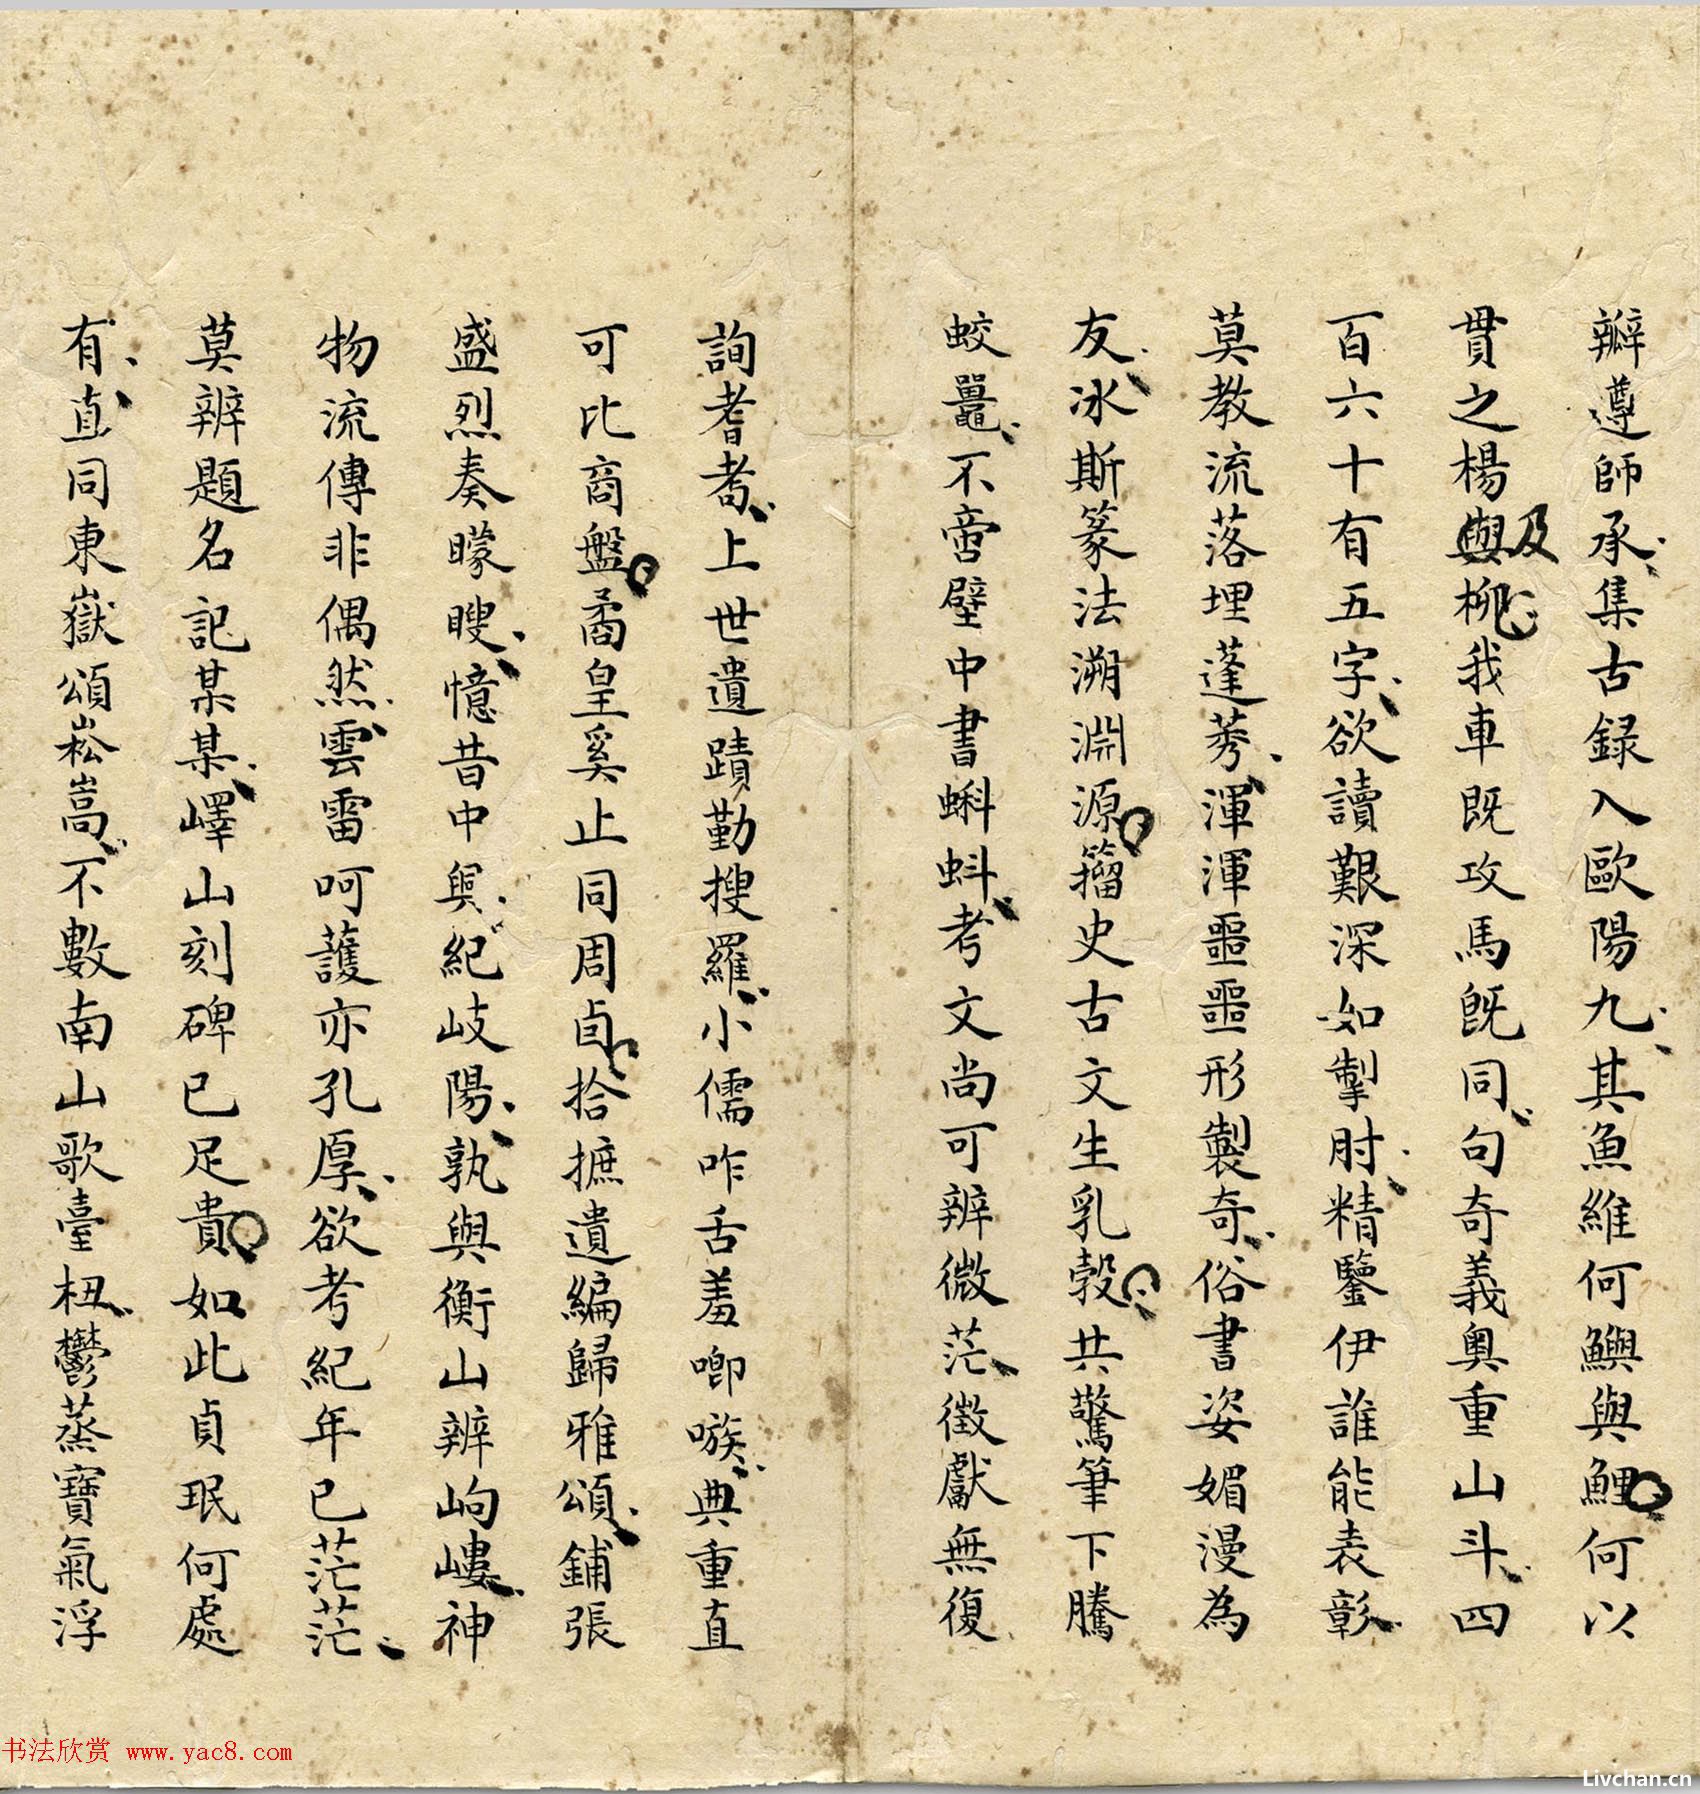 辮遵師承集古録入歐陽九其魚維何鱮與鯉何以
貫之楊與及柳我車既攻馬既同句奇義奥重山斗四
百六十有五字欲讀艱深如掣肘精鑒伊誰能表彰
莫教流落埋蓬莠渾渾噩噩形製奇俗書姿媚漫為
友冰斯篆法溯淵源籀史古文生乳彀共驚筆下騰
蛟鼉不啻壁中書蝌蚪考文尚可辨微茫徵獻無復
詢耆耇上世遺蹟勤搜羅小儒咋舌羞唧嗾典重直
可比商盤矞皇奚止同周卣拾摭遺編歸雅頌鋪張
盛烈奏矇瞍憶昔中興紀岐陽孰與衡山辨岣嶁神
物流傳非偶然雲雷呵護亦孔厚欲考紀年已茫茫
莫辨題名記某某嶧山刻碑已足貴如此貞珉何處
有直同東嶽頌崧嵩不數南山歌臺杻鬱蒸寶氣浮
书法欣赏 www.yac8.com
Livchan.cn